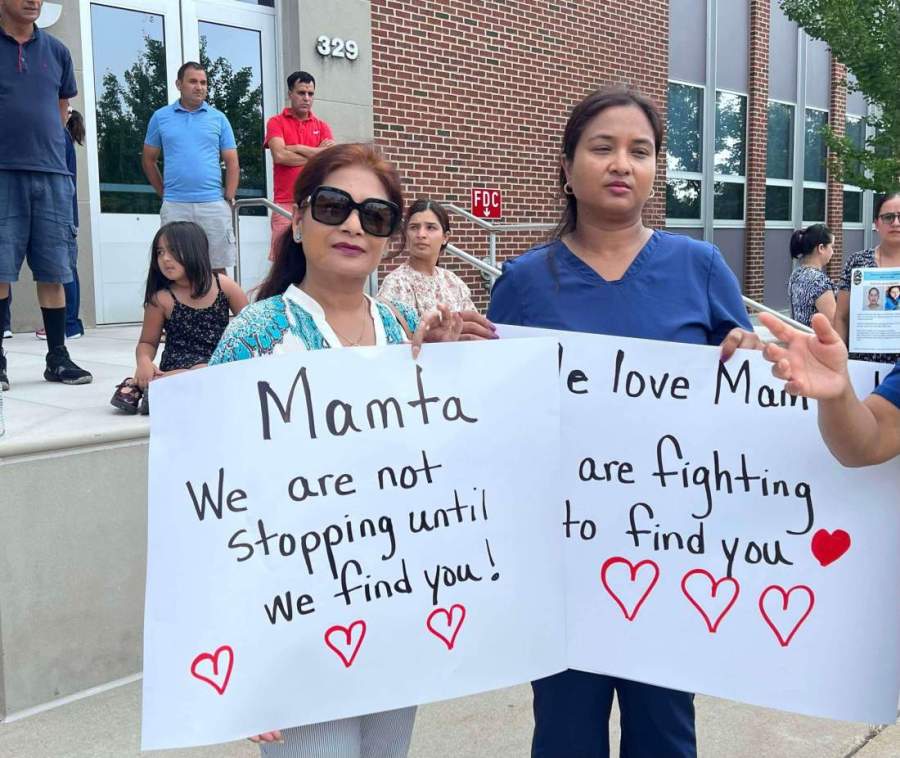 329
FDC
Mamta
We are not
stopping until
we find you!
e love Mam
are fighting
to find you